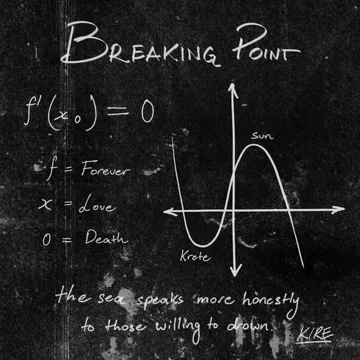 BREAKING POINT
f'(x₀) = 0
f = Forever
x = Love
0 = Death
Sun
Krete
the sea speaks more honestly
to those willing to drown.
KIRE